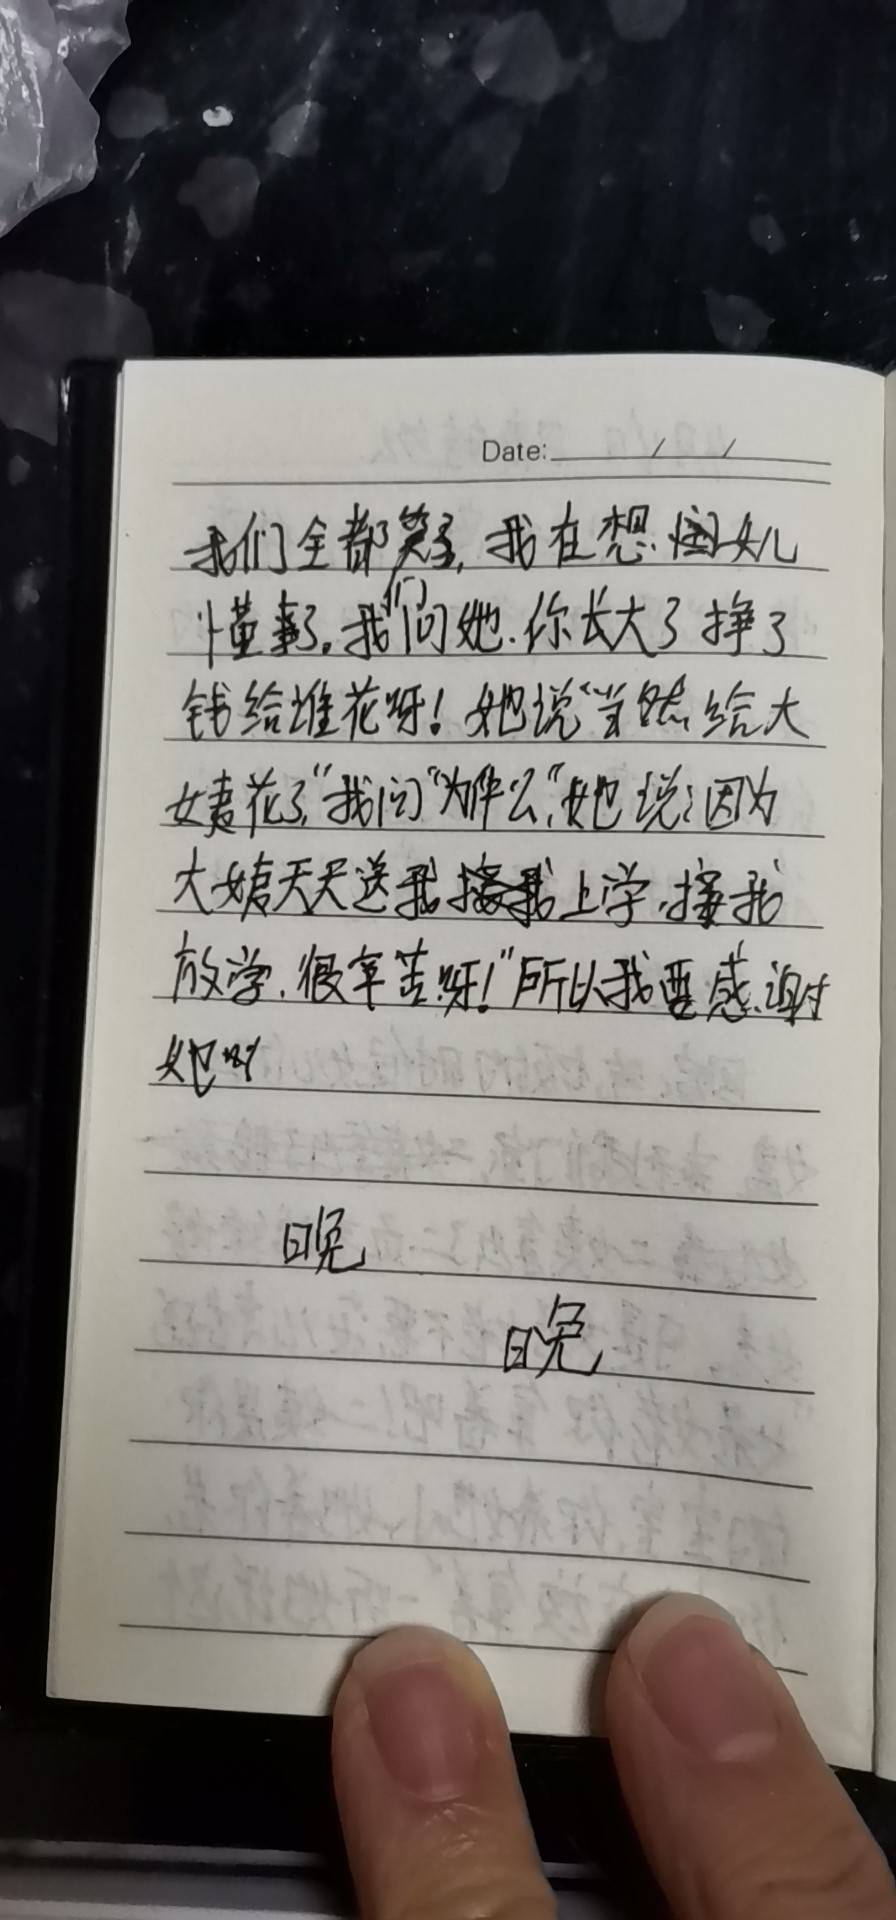 Date: / /
我们全都笑了,我在想.闺女儿
懂事了。我们问她.你长大了挣了
钱给谁花呀!她说"当然给大
姨花了"我问"为什么",她说:因为
大姨天天送我上学.接我
放学.很辛苦呀!"所以我要感谢
她
晚
晚